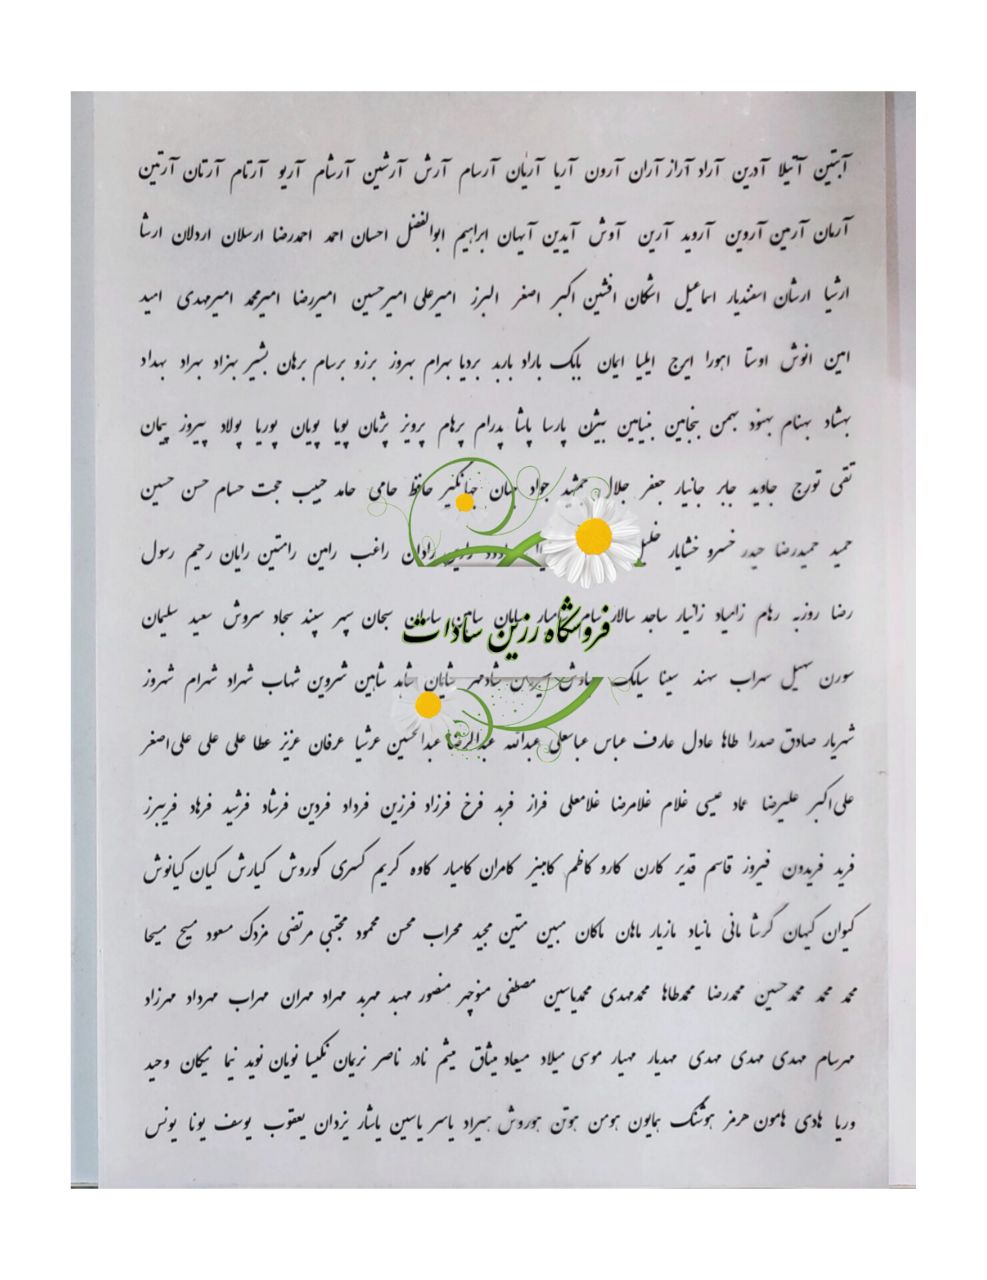 آبتین آتیلا آدرین آراد آراز آران آرون آریا آریان آرسام آرش آرشین آرشام آریو آرتام آرتان آرتین
آرمان آرمین آروین آروید آرین آوش آیدین آیهان ابراهیم ابوالفضل احسان احمد احمدرضا ارسلان اردلان ارشا
ارشیا ارشان اسفندیار اسماعیل اشکان افشین اکبر اصغر البرز امیرعلی امیرحسین امیررضا امیرمحمد امیرمهدی امید
امین انوش اوستا اهورا ایرج ایلیا ایمان بابک باراد باربد بردیا بهرام بهروز برزو برسام برهان بشیر بهزاد بهراد بهداد
بهشاد بهنام بهنود بهمن بنجامین بنیامین بیژن پارسا پاشا پدرام پرهام پرویز پژمان پویا پویان پوریا پولاد پیروز پیمان
تقی تورج جاوید جابر جانیار جعفر جلال جمشید جواد جهان جهانگیر حافظ حامی حامد حبیب حجت حسام حسن حسین
حمید حمیدرضا حیدر خسرو خشایار خلیل رادان راغب رامین رامتین رایان رحیم رسول
رضا روزبه رهام زامیاد زانیار ساجد سالار سامان سبحان سپهر سپند سجاد سروش سعید سلیمان
فروشگاه رزین سادات
سورن سهیل سهراب سهند سینا سیامک سیاوش شادمهر شایان شاهد شاهین شروین شهاب شهراد شهرام شهروز
شهریار صادق صدرا طاها عادل عارف عباس عباسعلی عبدالله عبدالرضا عبدالحسین عرشیا عرفان عزیز عطا علی علی علی‌اصغر
علی‌اکبر علیرضا عماد عیسی غلام غلامرضا غلامعلی فراز فربد فرخ فرزاد فرزین فرداد فردین فرشاد فرشید فرهاد فریبرز
فرید فریدون فیروز قاسم قدیر کارن کارو کاظم کامبیز کامران کامیار کاوه کریم کسری کوروش کیارش کیان کیانوش
کیوان کیهان گرشا مانی مانیاد مازیار ماهان ماکان مبین متین مجید محراب محسن محمود مجتبی مرتضی مزدک مسعود مسیح مسیحا
محمد محمد محمدحسین محمدرضا محمدطاها محمدمهدی محمدیاسین مصطفی منوچهر منصور مهبد مهربد مهراد مهران مهراب مهرداد مهرزاد
مهرسام مهدی مهدی مهدی مهدیار مهیار موسی میلاد میعاد میثاق میثم نادر ناصر نریمان نکیسا نویان نوید نیما نیکان وحید
وریا هادی هامون هرمز هوشنگ همایون هومن هوتن هوروش هیراد یاسر یاسین یاشار یزدان یعقوب یوسف یونا یونس